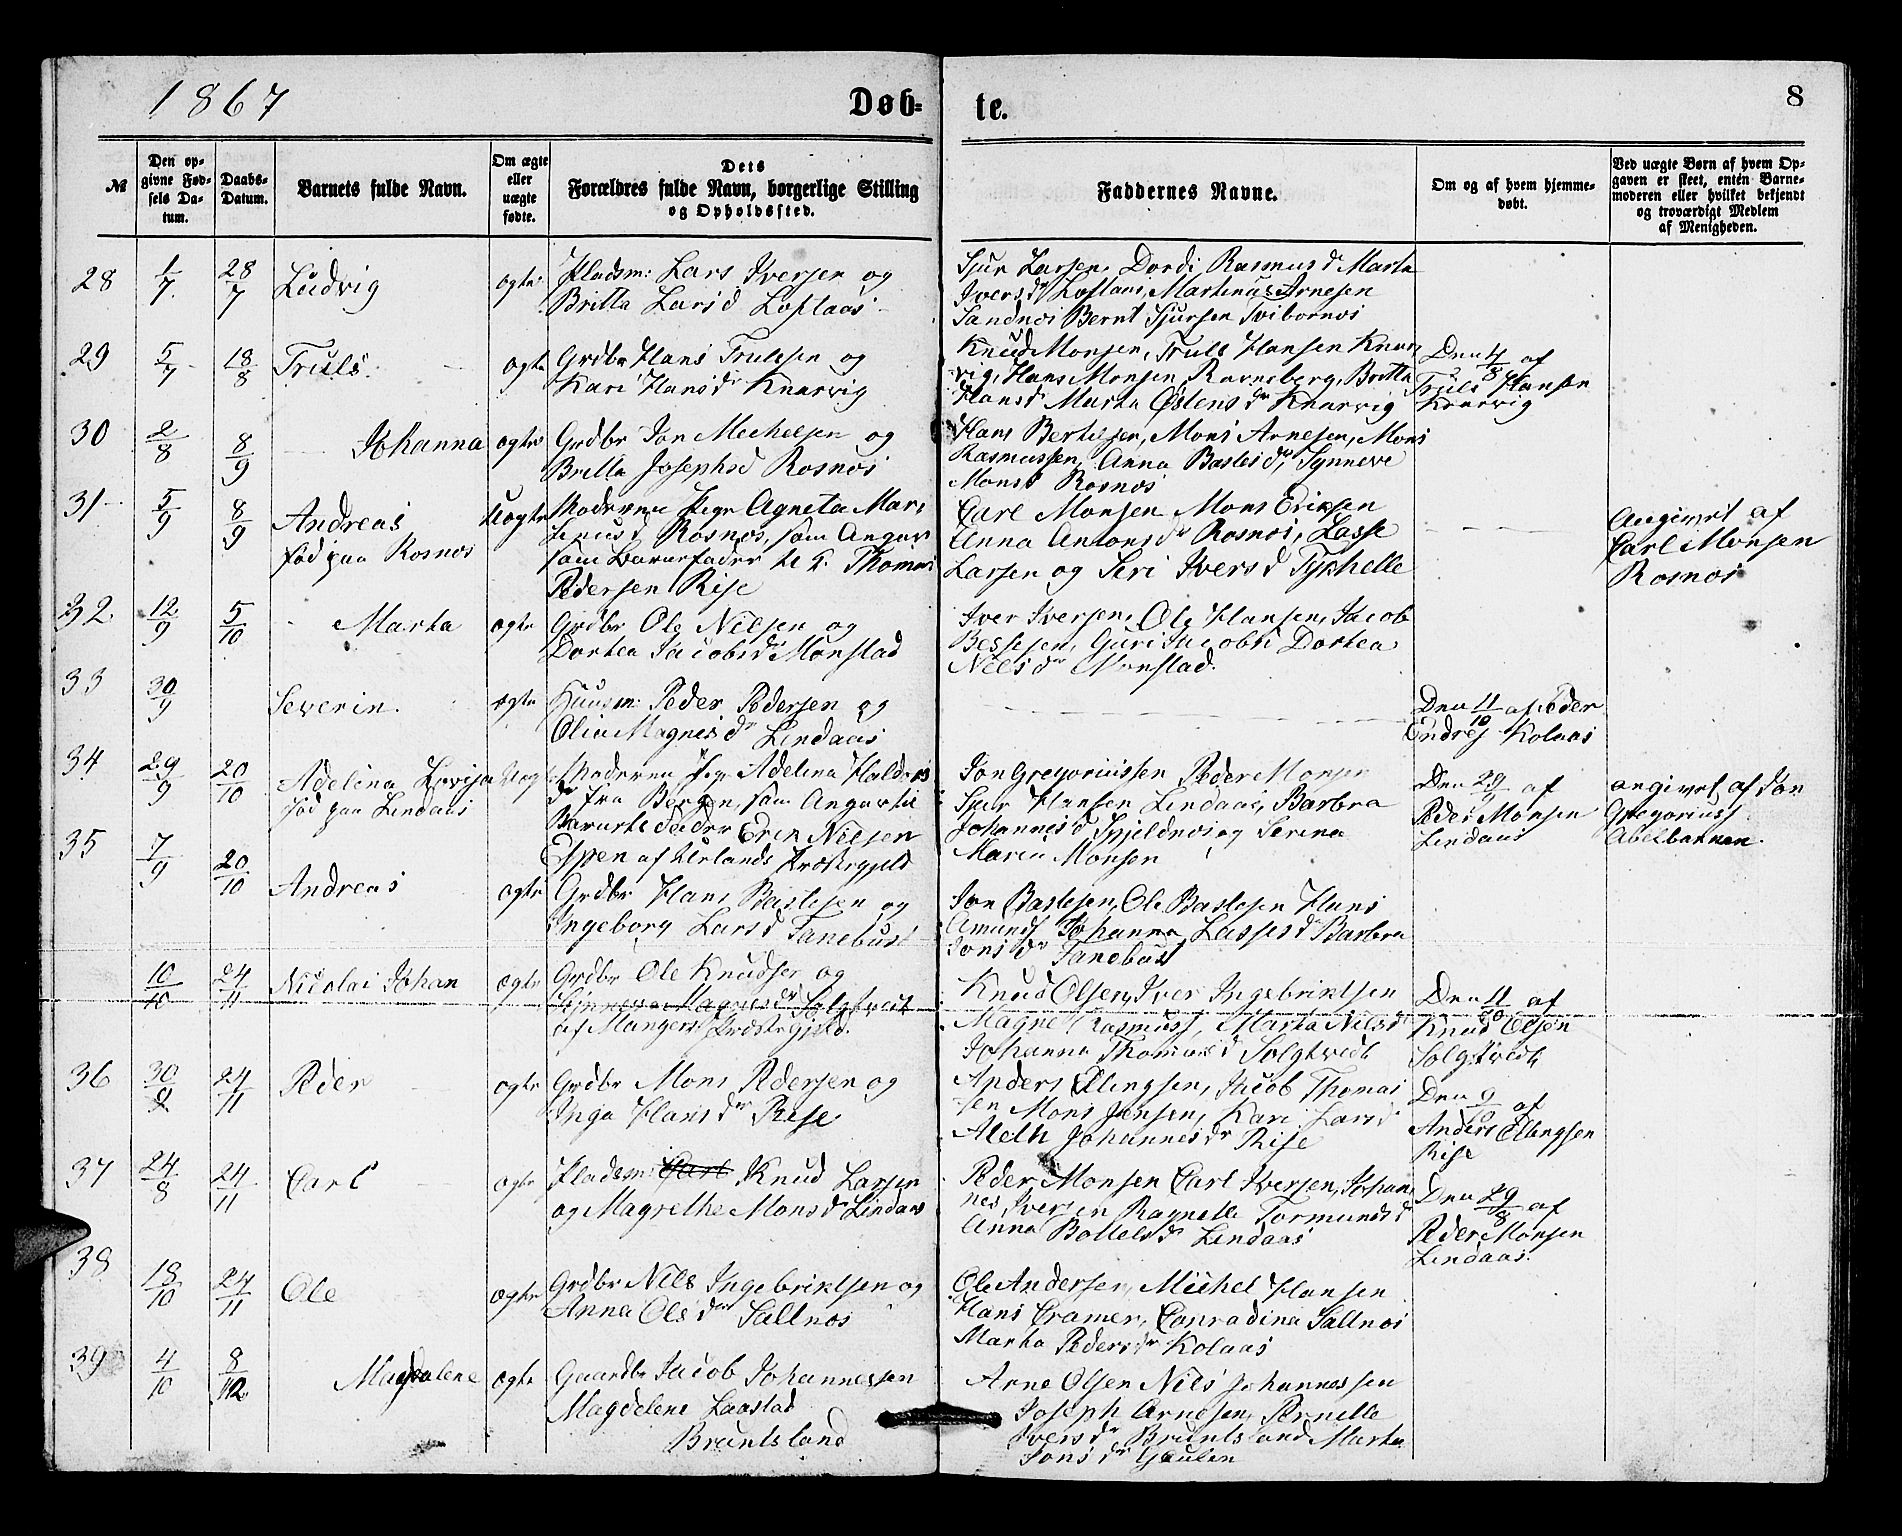 1867
Døb-
te.
8
№
Den op-
givne Fød-
sels Da-
tum.
Daabs-
Datum.
Barnets fulde Navn.
Om ægte
eller
uægte
fødte.
Dets
Forældres fulde Navn, borgerlige Stilling
og Opholdssted.
Faddernes Navne.
Om og af hvem hjemme-
døbt.
Ved uægte Børn af hvem Op-
gaven er skeet, enten Barne-
moderen eller hvilket bekjendt
og troværdigt Medlem
af Menigheden.
28
1/7
28/7
Ludvig
ægte
Pladsm: Lars Iversen og
Britta Larsd Loftaas
Sjur Larsen, Dordi Rasmusd Marta
Iversdr Loftaas, Martinus Arnesen
Sandnøs Bernt Sjursen Svibornøs
29
5/7
18/8
Truls
ægte
Grdbr Hans Trulssen og
Kari Hansdr Knarvig
Knud Monsen, Truls Hansen Knar
vig, Hans Monsen Ravneberg, Britta
Hansd Marta Østensdr Knarvig
Den 4/8 af
Truls Hansen
Knarvig
30
2/8
8/9
Johanna
ægte
Grdbr Jon Mechelsen og
Britta Josephsd Rosnøs
Hans Bertilsen, Mons Arnesen, Mons
Rasmussen, Anna Baslesdr, Synneve
Monsd Rosnøs
31
5/9
8/9
Andreas
fød paa Rosnøs
Uægte
Moderen Pige Agneta Mar
Linusd Rosnøs, som Angav
som Barnefader U. K. Thomas
Pedersen Rise
Carl Monsen Mons Eriksen
Anna Antonsdr Rosnøs, Lasse
Larsen og Seri Iversd Fyshelle
Angivet af
Carl Monsen
Rosnøs
32
12/9
5/10
Marta
ægte
Grdbr Ole Nilsen og
Dortea Jacobsdr Monstad
Iver Iversen, Ole Hansen, Jacob
Bessesen, Guri Jacobs Dortea
Nilsdr Monstad.
33
30/9
Severin.
ægte
Huusm: Peder Pedersen og
Olia Magnesdr Lindaas
Den 11/10 af Peder
Endres Kolaas
34
29/9
20/10
Adelina Lovisa
fød paa Lindaas
Uægt
Moderen Pige Adelina Haldors
dr fra Bergen, som Angav til
Barnets Fader Erik Nilsen
Espen af Urlands Præstegjeld
Jon Gregoriussen Peder Monsen
Sjur Hansen Lindaas, Barbra
Johannesd Spjeldnøs og Serina
Maria Monsen
Den 29/9 af
Peder Monsen
Lindaas
angivet af Jon
Gregoriuss
Abelbakken.
35
7/9
20/10
Andreas
ægte
Grdbr Hans Baslesen og
Ingeborg Larsd Fanebust
Jon Baslesen, Ole Baslesen Hans
Amunds Johanna Lassesd Barbra
Jonsdr Fanebust
10/10
24/11
Nicolai Johan
ægte
Grdbr Ole Knudsen og
Synneva Magnesdr Solgtveit
af Mangers Præstegjeld.
Knud Olsen, Iver Ingebriktsen
Magne Rasmuss, Marta Nilsd
Johanna Thomasd Solgtvedt
Den 11/10 af
Knud Olsen
Solgtvedt
36
30/8
24/11
Peder
ægte
Grdbr Mons Pedersen og
Inga Hansdr Rise
Anders Ellingsen, Jacob Thomas
sen Mons Jensen, Kari Larsd
Aleth Johannesdr Rise
Den 9/10 af
Anders Ellingsen
Rise
37
24/8
24/11
Carl
ægte
Pladsm: Carl Knud Larsen
og Magrethe Monsdr Lindaas
Peder Monsen Carl Iversen, Johan
nes Iversen Ragnelle Tormundsd
Anna Bottelsdr Lindaas
Den 29/8 af
Peder Monsen
Lindaas.
38
18/10
24/11
Ole
ægte
Grdbr Nils Ingebriktsen og
Anna Olsdr Saltnøs
Ole Andersen, Michel Hansen
Hans Cramer, Conradina Saltnøs
Marta Pedersdr Kolaas
39
4/10
8/12
Magdalene
ægte
Gaardbr Jacob Johannessen
Magdelene Laastad
Bruntsland
Arne Olsen Nils Johannessen
Joseph Arnesen, Pernelle
Iversdr Bruntsland Marta
Jonsdr Gaulen